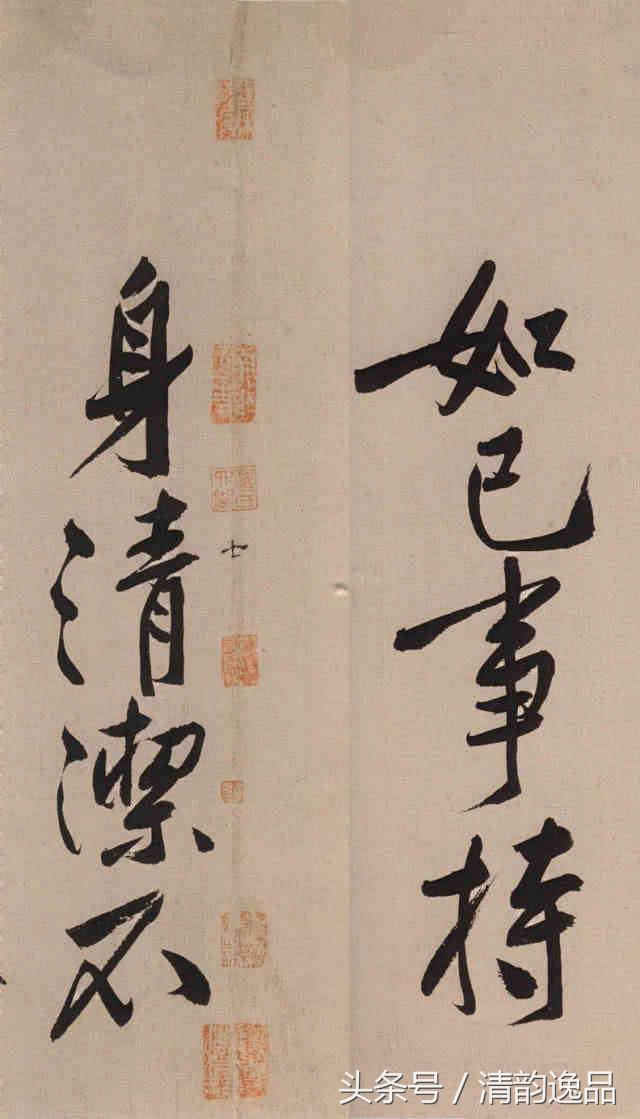 如已事持
身清潔不
七
头条号 / 清韵逸品